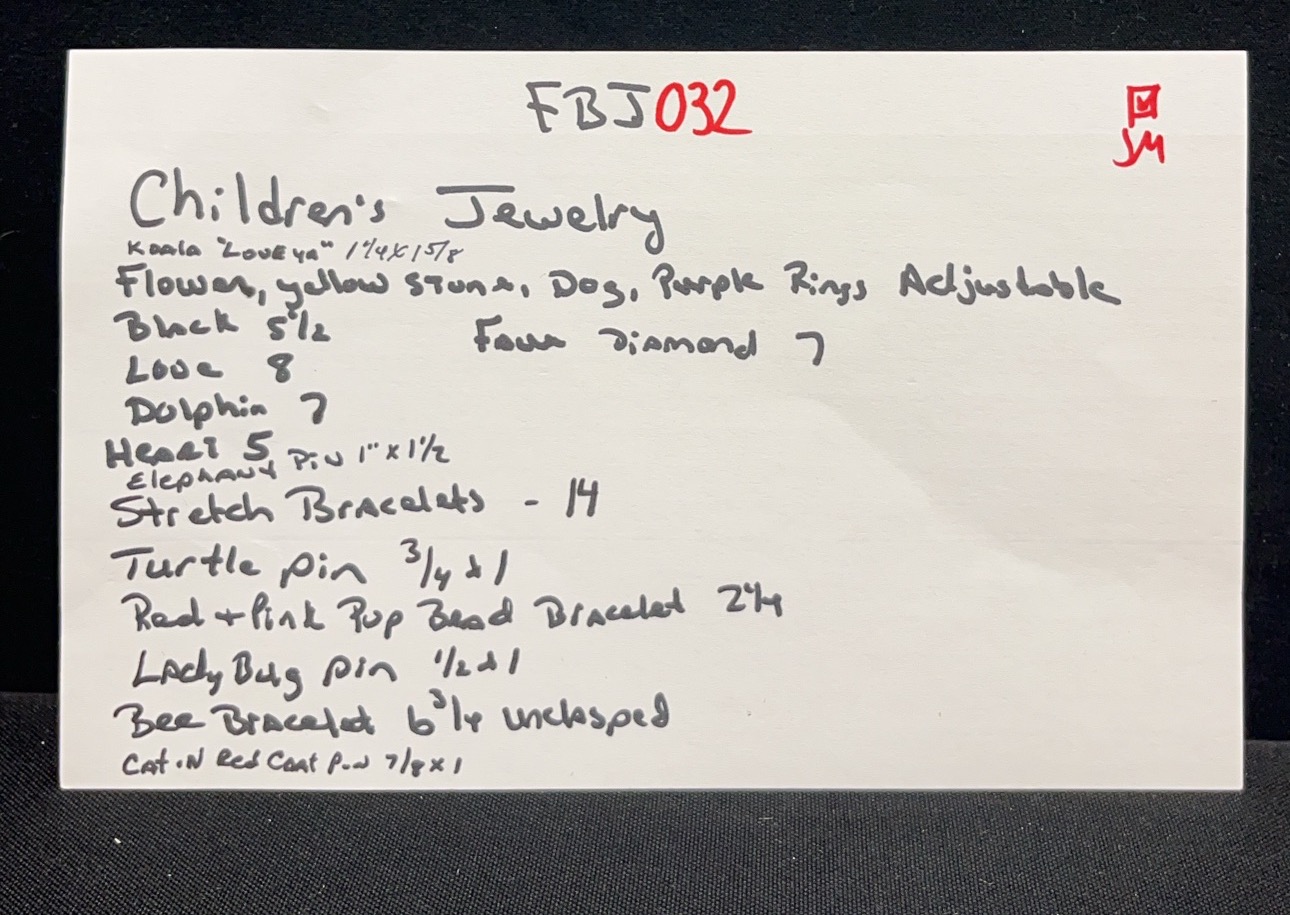 FBJ032
JM
Children's Jewelry
Koala "Love ya" 1 1/4 x 1 5/8
Flower, yellow stone, Dog, Purple Rings Adjustable
Black 5 1/2
Faux Diamond 7
Love 8
Dolphin 7
Heart 5
Elephant Pin 1" x 1 1/2
Stretch Bracelets - 14
Turtle pin 3/4 x 1
Red + Pink Pop Bead Bracelet 2 1/4
Lady Bug pin 1/2 x 1
Bee Bracelet 6 3/4 unclasped
Cat in Red Coat Pin 7/8 x 1